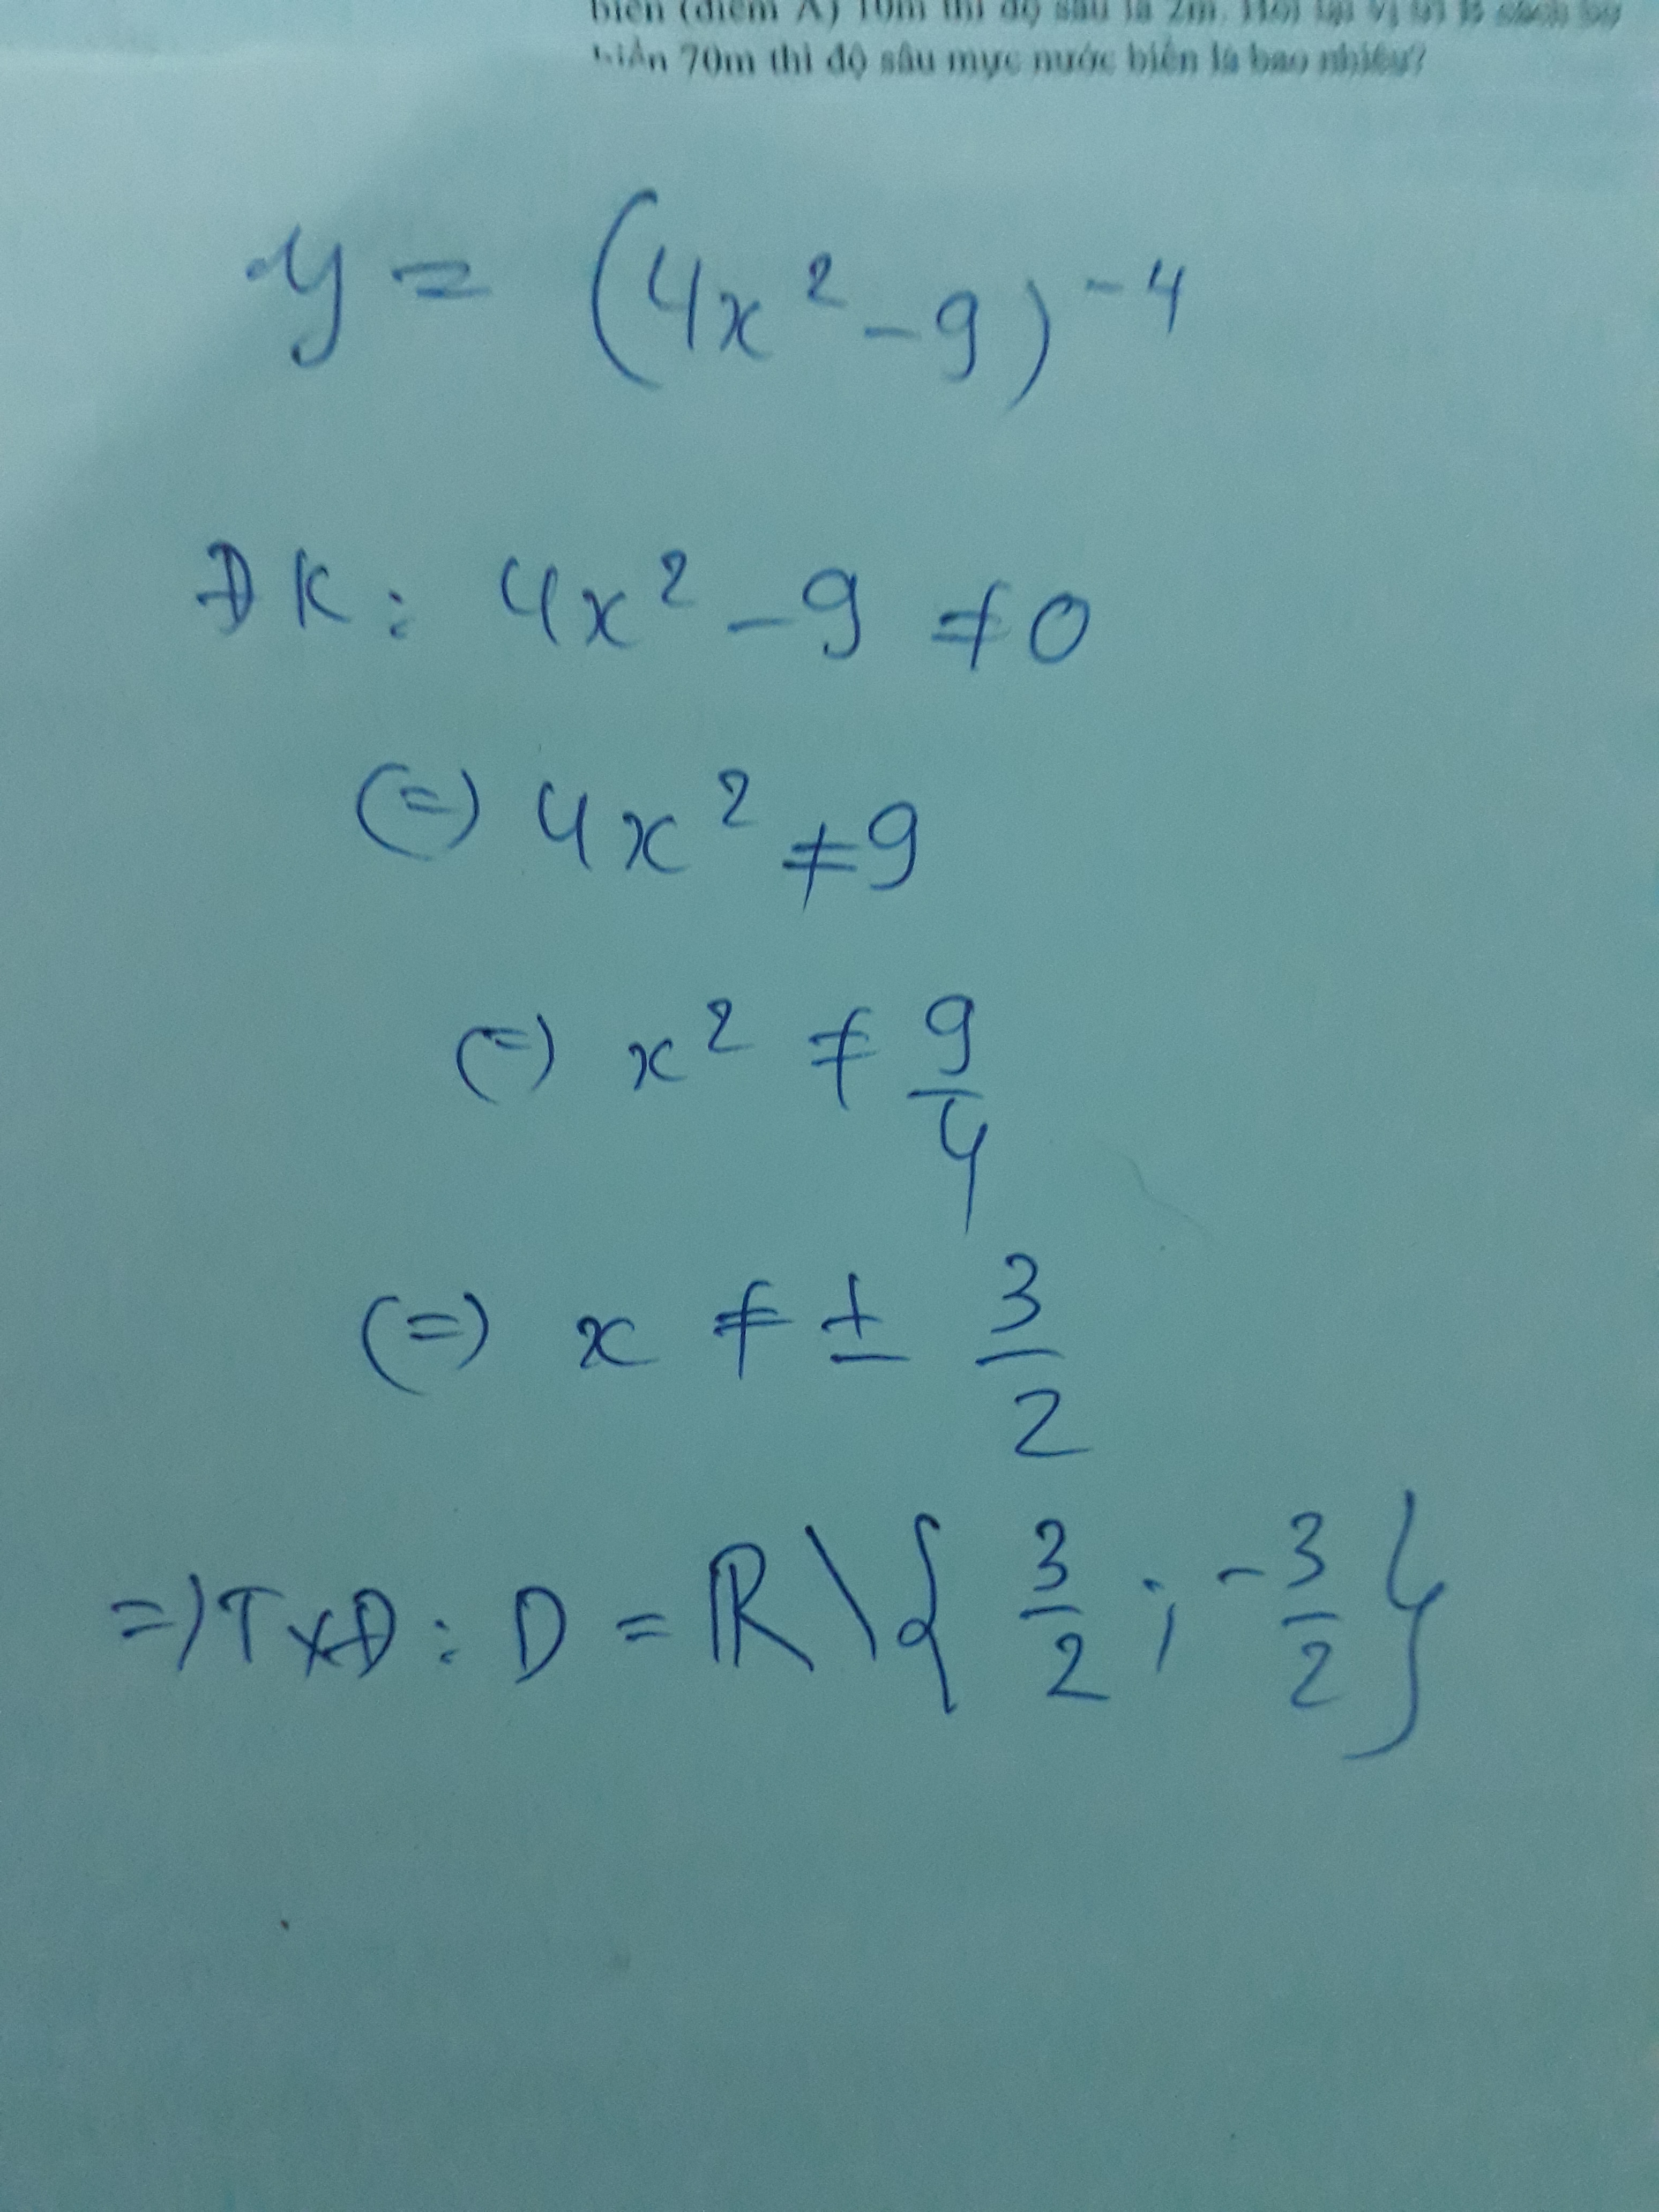 biển (điểm A) 10m thì độ sâu là 2m. Hỏi tại vị trí B cách bờ
biển 70m thì độ sâu mực nước biển là bao nhiêu?
y = (4x² - 9)⁻⁴
ĐK: 4x² - 9 ≠ 0
(=) 4x² ≠ 9
(=) x² ≠ 9/4
(=) x ≠ ± 3/2
=) TXĐ: D = ℝ \ { 3/2 ; -3/2 }